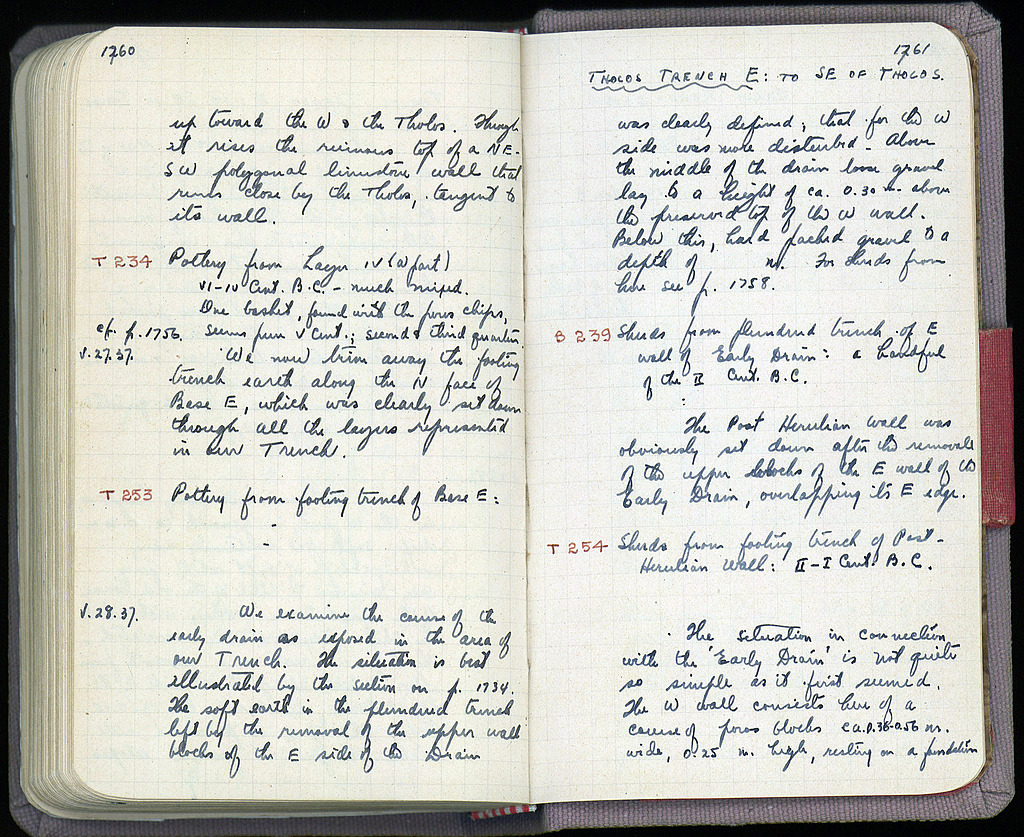 1760
up toward the W of the Tholos. Through
it rises the ruinous top of a NE-
SW polygonal limestone wall that
runs close by the Tholos, tangent to
its wall.
T 234 Pottery from Layer IV (a part)
VI-IV Cent. B.C. - much mixed.
One basket, found with the poros chips,
cf. p. 1756. seems pure V Cent.; second & third quarters.
V.27.37. We now trim away the footing
trench earth along the N face of
Base E, which was clearly set down
through all the layers represented
in our Trench.
T 253 Pottery from footing trench of Base E:
-
-
V.28.37. We examine the course of the
early drain as exposed in the area of
our Trench. The situation is best
illustrated by the section on p. 1734.
The soft earth in the plundered trench
left by the removal of the upper wall
blocks of the E side of the Drain
1761
THOLOS TRENCH E: TO SE OF THOLOS.
was clearly defined; that for the W
side was more disturbed. Above
the middle of the drain loose gravel
lay to a height of ca. 0.30 m. above
the preserved top of the W wall.
Below this, hard packed gravel to a
depth of m. For sherds from
here see p. 1758.
B 239 Sherds from plundered trench of E
wall of Early Drain: a handful
of the II Cent. B.C.
The Post Herulian Wall was
obviously set down after the removal
of the upper blocks of the E wall of the
Early Drain, overlapping its E edge.
T 254 Sherds from footing trench of Post-
Herulian Wall: II-I Cent. B.C.
The situation in connection
with the 'Early Drain' is not quite
so simple as it first seemed.
The W wall consists here of a
course of poros blocks ca. 0.36-0.56 m.
wide, 0.25 m. high, resting on a foundation